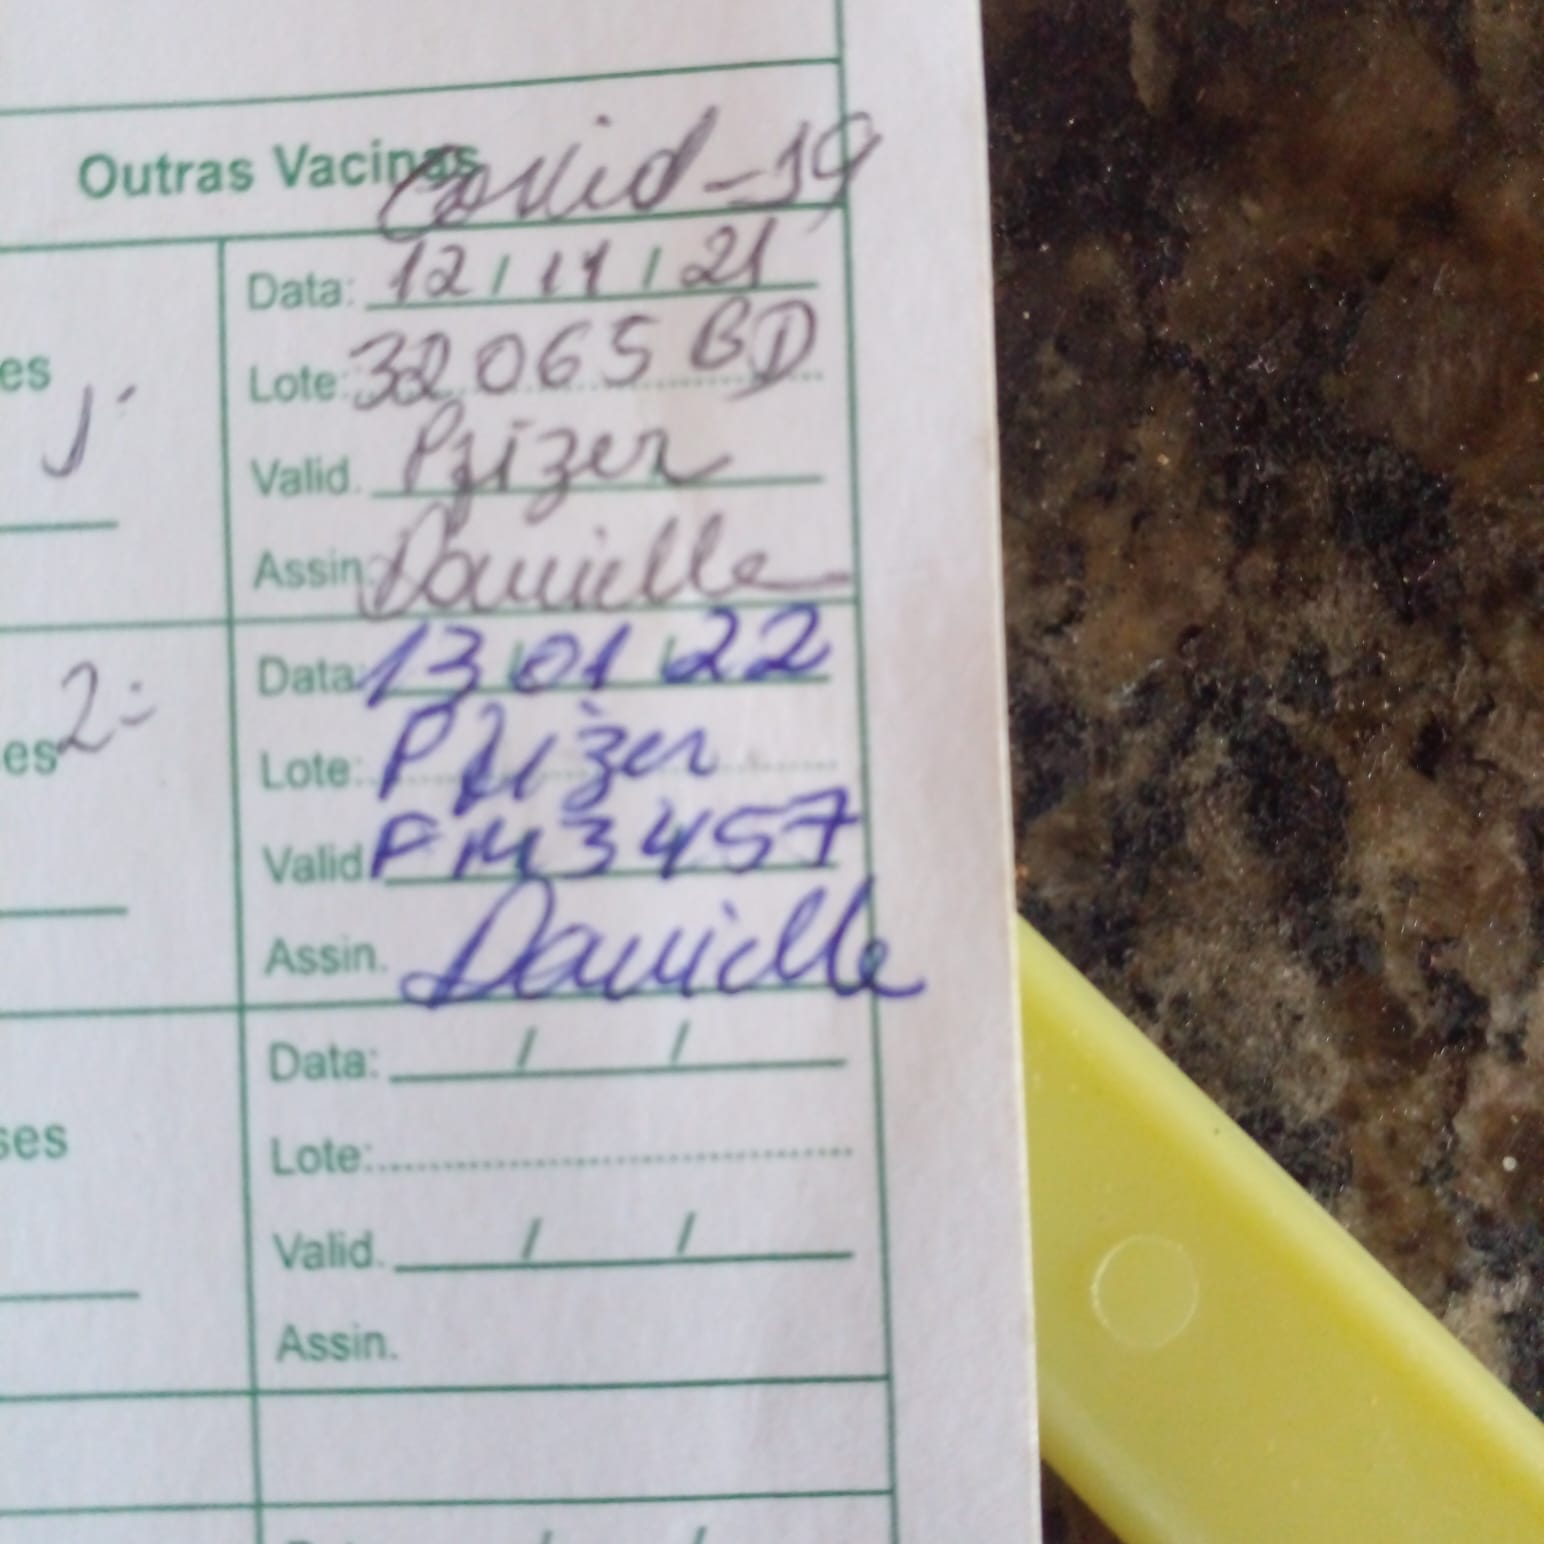 Outras Vacinas Covid-19
Data: 12/11/21
es
1ª
Lote: 32065BD
Valid. Pfizer
Assin. Danielle
Data: 13/01/22
2ª
es
Lote: Pfizer
Valid. FM3457
Assin. Danielle
Data: / /
ses
Lote:
Valid. / /
Assin.